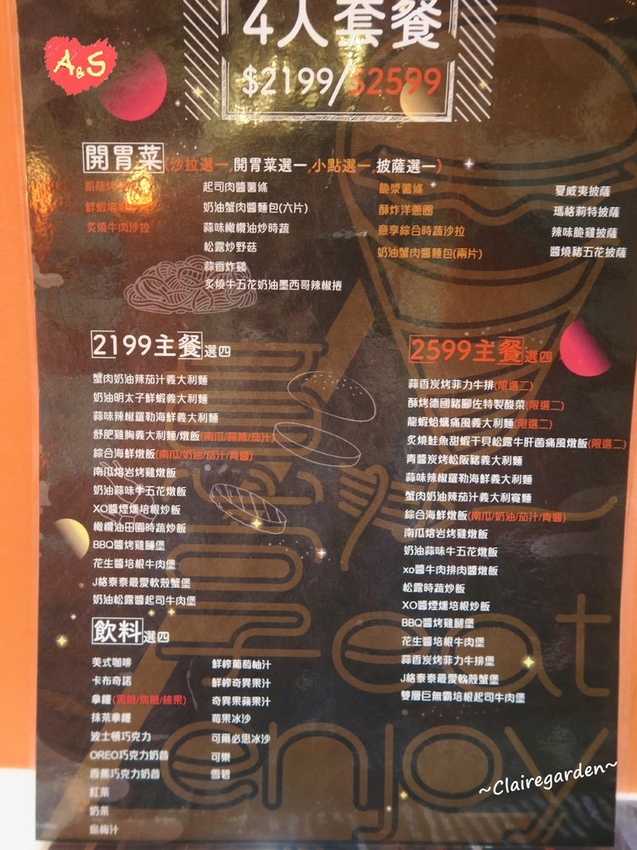 A&S
4人套餐
$2199/$2599
開胃菜(沙拉選一,開胃菜選一,小點選一,披薩選一)
鮮蝦培
炙燒牛肉沙拉
起司肉醬薯條
奶油蟹肉醬麵包(六片)
蒜味橄欖油炒時蔬
松露炒野菇
蒜香炸雞
炙燒牛五花奶油墨西哥辣椒捲
脆漿薯條
酥炸洋蔥圈
意享綜合時蔬沙拉
奶油蟹肉醬麵包(兩片)
夏威夷披薩
瑪格莉特披薩
辣味脆雞披薩
醬燒豬五花披薩
2199主餐選四
蟹肉奶油辣茄汁義大利麵
奶油明太子鮮蝦義大利麵
蒜味辣椒羅勒海鮮義大利麵
舒肥雞胸義大利麵/燉飯(南瓜/麻辣/茄汁)
綜合海鮮燉飯(南瓜/奶油/茄汁/青醬)
南瓜熔岩烤雞燉飯
奶油蒜味牛五花燉飯
XO醬煙燻培根炒飯
橄欖油田園時蔬炒飯
BBQ醬烤雞腿堡
花生醬培根牛肉堡
J格泰泰最愛軟殼蟹堡
奶油松露醬起司牛肉堡
2599主餐選四
蒜香炭烤菲力牛排(限選二)
酥烤德國豬腳佐特製酸菜(限選二)
龍蝦蛤蠣痛風義大利麵(限選二)
炙燒鮭魚甜蝦干貝松露牛肝菌痛風燉飯(限選二)
青醬炭烤松阪豬義大利麵
蒜味辣椒羅勒海鮮義大利麵
蟹肉奶油辣茄汁義大利寬麵
綜合海鮮燉飯(南瓜/奶油/茄汁/青醬)
南瓜熔岩烤雞燉飯
奶油蒜味牛五花燉飯
xo醬牛肉排肉醬燉飯
松露時蔬炒飯
XO醬煙燻培根炒飯
BBQ醬烤雞腿堡
花生醬培根牛肉堡
蒜香炭烤菲力牛排堡
J格泰泰最愛軟殼蟹堡
雙層巨無霸培根起司牛肉堡
飲料選四
美式咖啡
卡布奇諾
拿鐵(黑糖/焦糖/榛果)
抹茶拿鐵
波士頓巧克力
OREO巧克力奶昔
香蕉巧克力奶昔
紅茶
奶茶
烏梅汁
鮮榨葡萄柚汁
鮮榨奇異果汁
奇異果蘋果汁
莓果冰沙
可爾必思冰沙
可樂
雪碧
eat
enjoy
~Clairegarden~